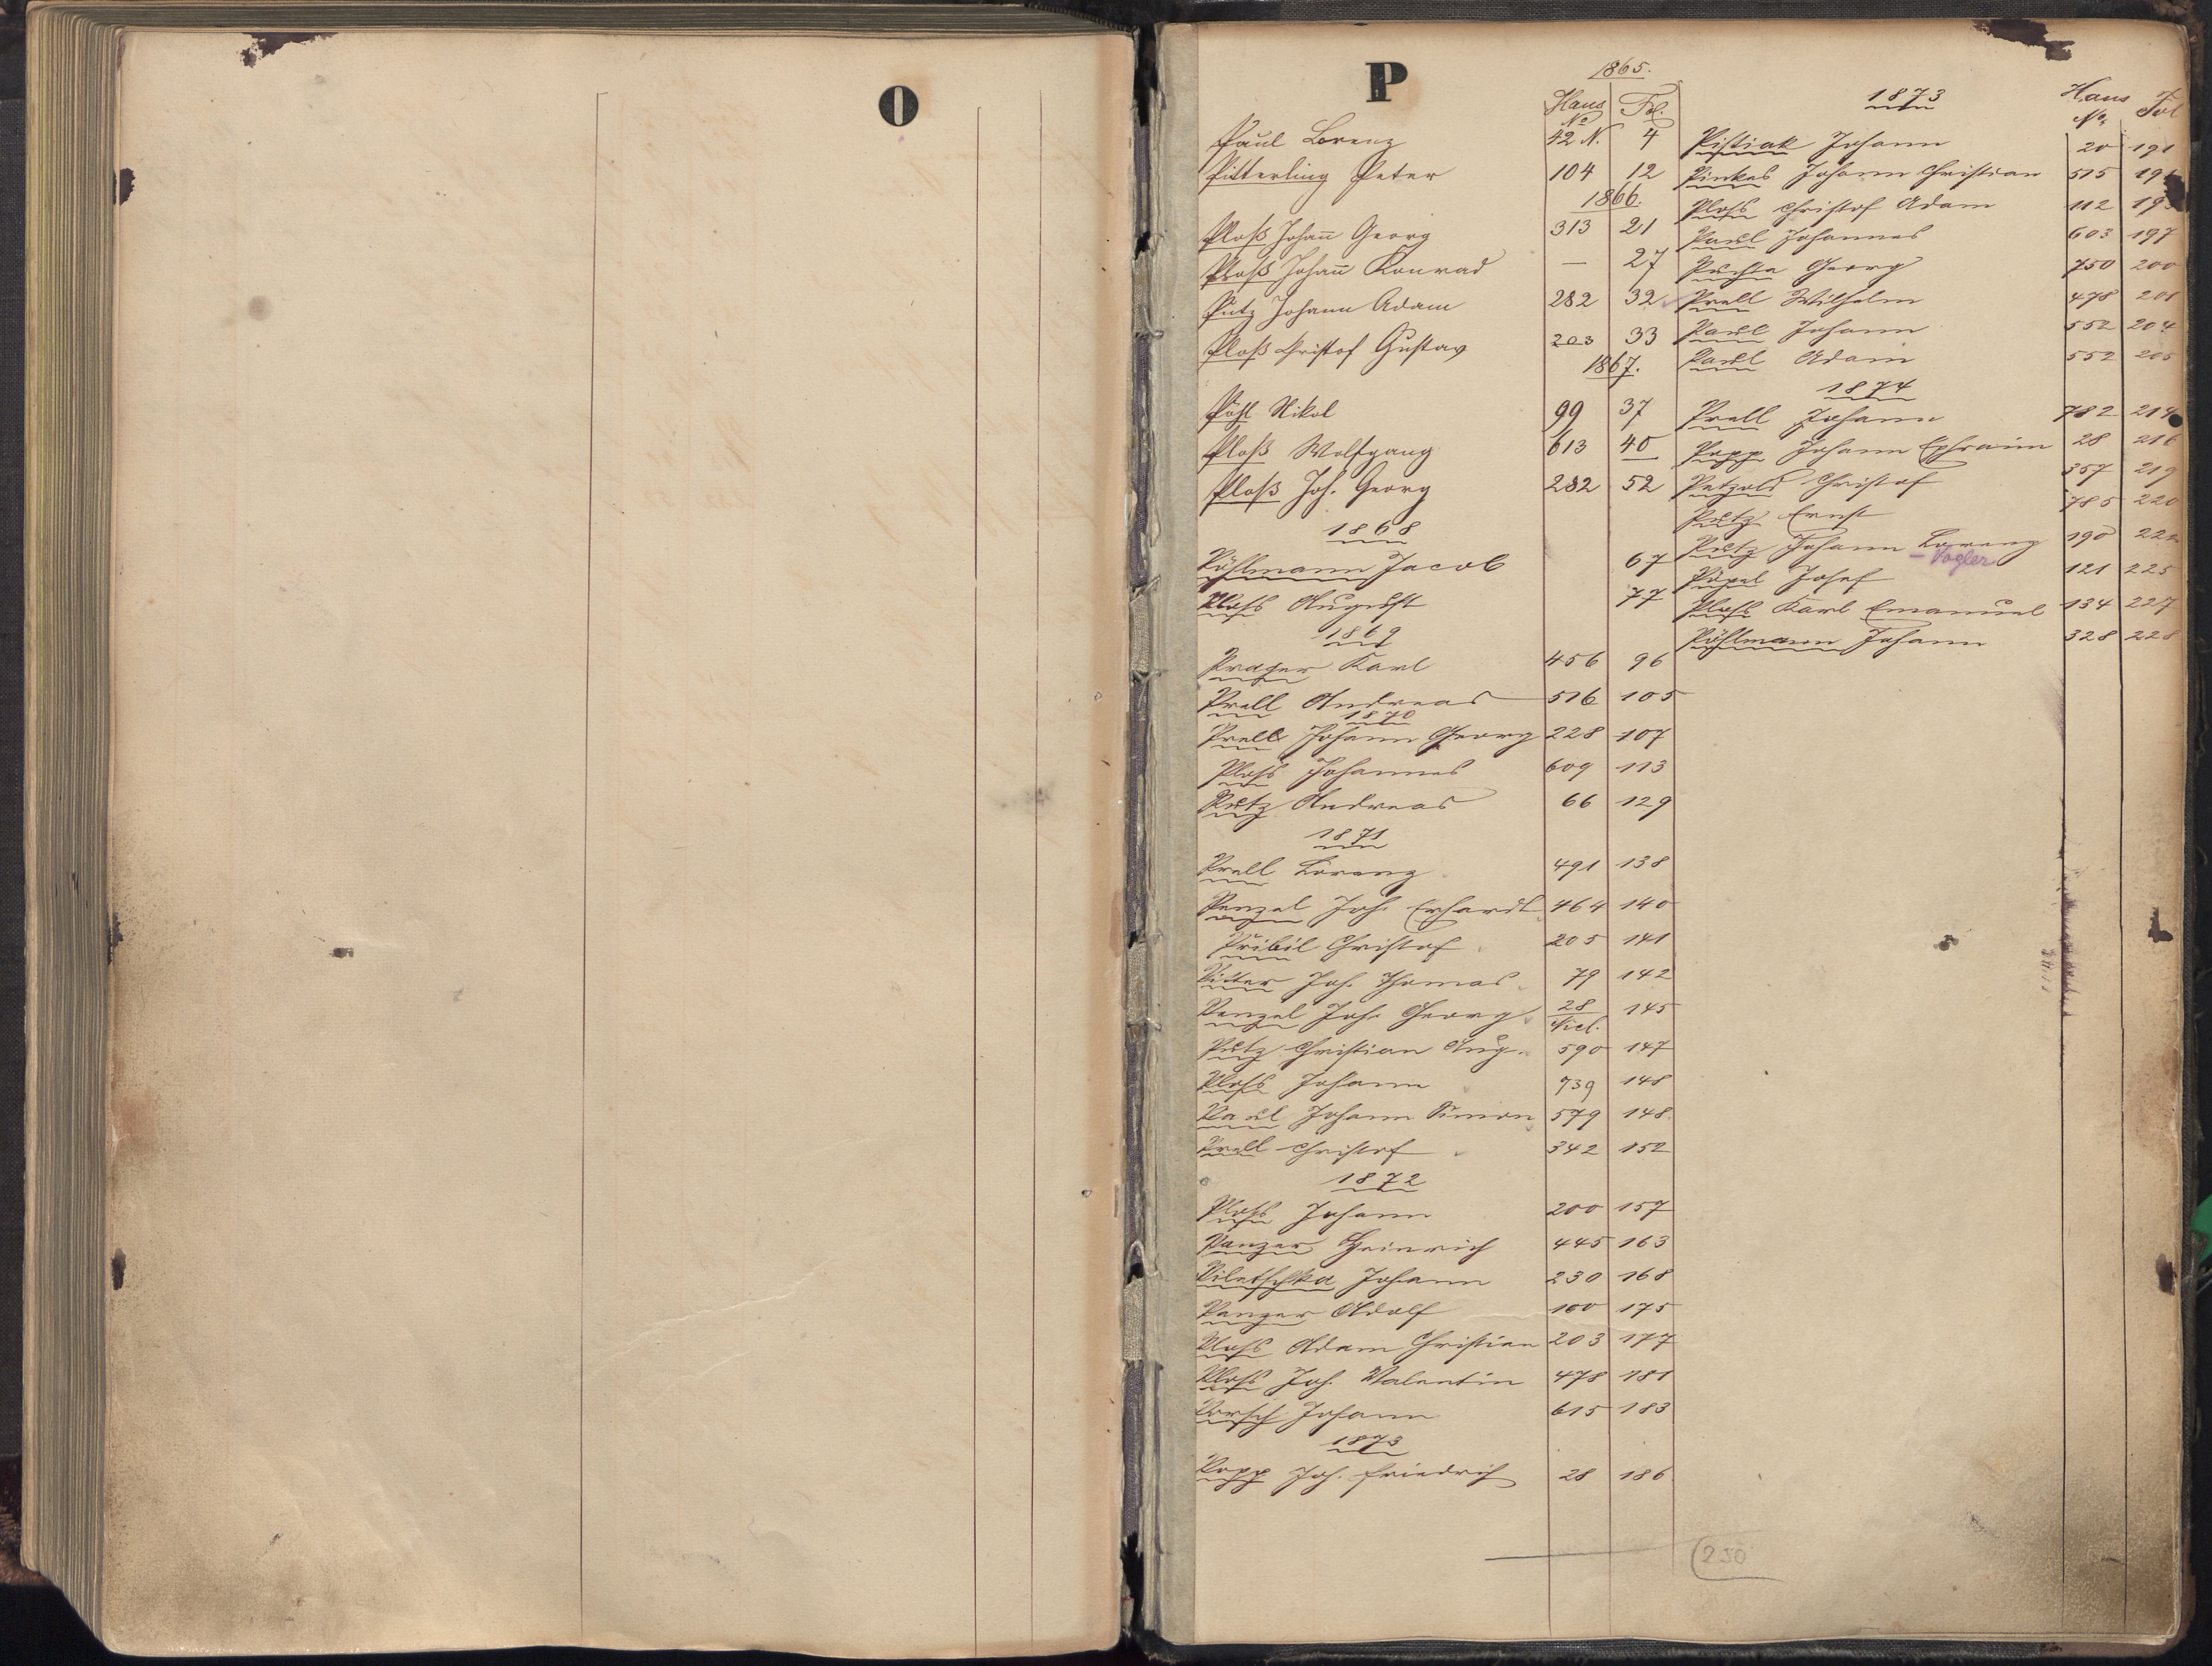 O
P
1865.
Haus No Fol.
Paul Lorenz 42 N. 4
Pitterling Peter 104 12
1866.
Ploß Johañ Georg 313 21
Ploß Johañ Konrad — 27
Putz Johann Adam 282 32
Ploß Christof Gustav 203 33
1867.
Pöhl Nikol 99 37
Ploß Wolfgang 613 40
Ploß Joh. Georg 282 52
1868
Pöhlmann Jacob 67
Ploss August 77
1869
Prager Karl 456 96
Prell Andreas 516 105
1870
Prell Johann Georg 228 107
Ploss Johannes 609 113
Putz Andreas 66 129
1871
Prell Lorenz 491 138
Penzel Joh. Erhardt 464 140
Pribil Christof 205 141
Joh. Thomas 79 142
Penzel Joh. Georg 28 Nicl. 145
Putz Christian Aug. 590 147
Ploss Johann 739 148
Paul Johann Simon 579 148
Prell Christof 342 152
1872
Ploss Johann 200 157
Panzer Heinrich 445 163
Piletschka Johann 230 168
Panzer Adolf 100 175
Ploss Adam Christian 203 177
Ploss Joh. Valentin 478 181
Porsch Johann 615 183
1873
Popp Joh. Friedrich 28 186
1873
Haus No. Fol
Pistiak Johann 20 191
Pinkas Johann Christian 515
Ploss Christof Adam 112
Paul Johannes 603 197
Puchta Georg 750 200
Prell Wilhelm 478 201
Paul Johann 552 204
Paul Adam 552 205
1874
Prell Johann 782 214
Popp Johann Ephraim 28 216
Petzold Christof 357 219
Putz Ernst 785 220
Putz Johann Lorenz 190
- Vogler
Josef 121 225
Ploss Karl Emanuel 134 227
Pöhlmann Johann 328 228
230